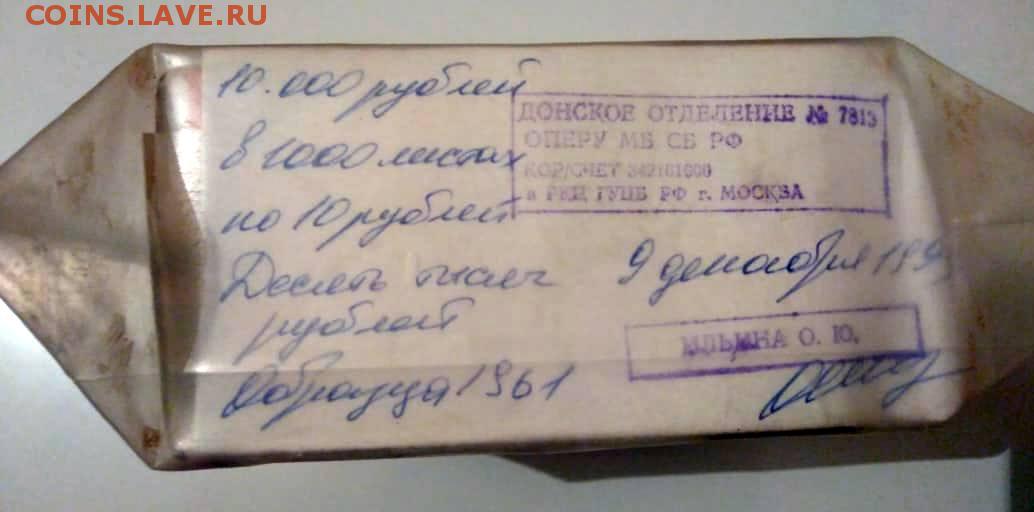 COINS.LAVE.RU
10.000 рублей
в 1000 листах
по 10 рублей
Десять тысяч
рублей
Образца 1961
ДОНСКОЕ ОТДЕЛЕНИЕ № 7813
ОПЕРУ МБ СБ РФ
КОР/СЧЕТ 342101000
в РКЦ ГУЦБ РФ г. МОСКВА
9 декабря
ИЛЬИНА О. Ю.